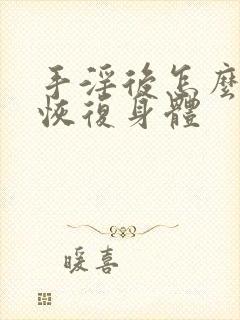 手淫後怎麼
恢復身體
暖喜